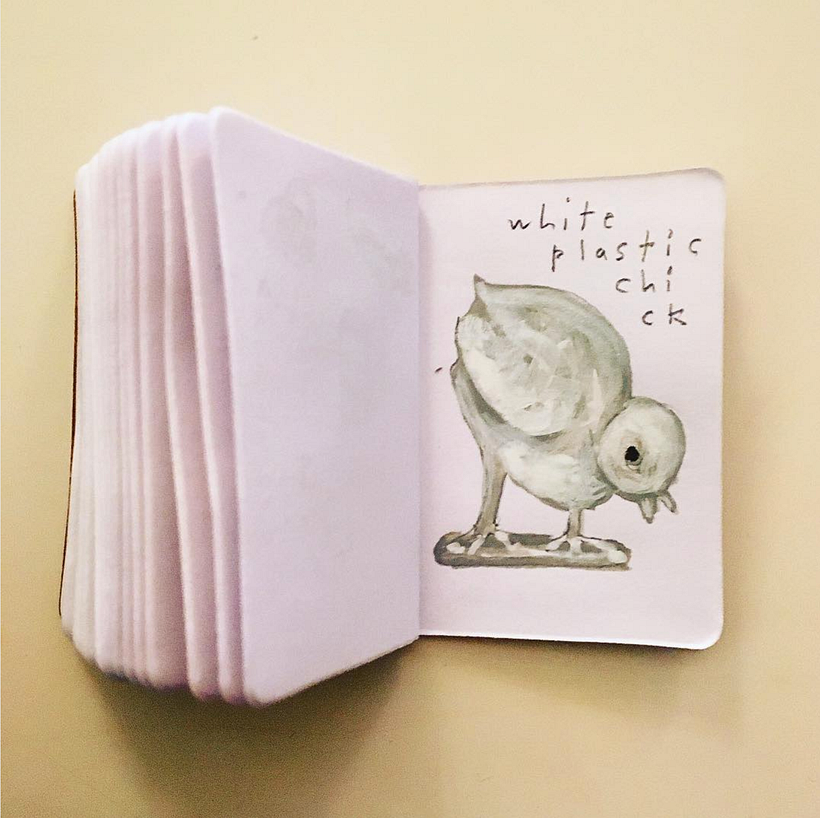 white
plastic
chi
ck